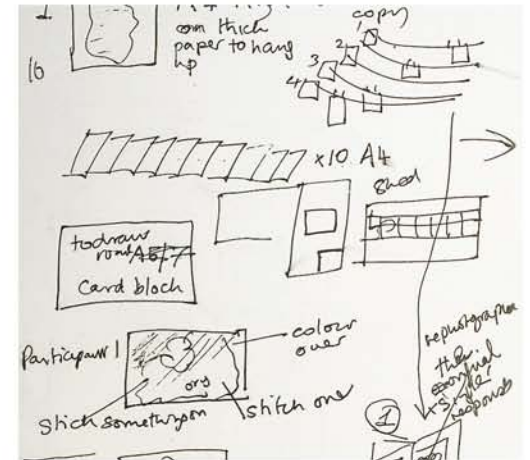 1
on thick
paper to hang
up
16
copy
2
3
4
x10 A4
shed
to draw
A6/7
Card block
Participant 1
colour
over
org
Stich something on
stitch one
rephotographed
the
original
+ single
response
1